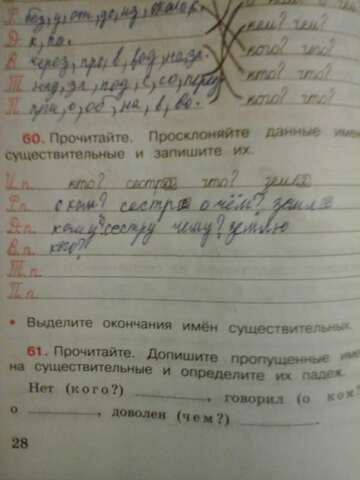 Р. без, у, от, до, из, около, с.
Д. к, по.
В. через, про, в, под, на, за.
Т. над, за, под, с, со, перед
П. при, о, об, на, в, во.
кем? чем?
кого? что?
кто? что?
кого? что?
60. Прочитайте. Просклоняйте данные имен
существительные и запишите их.
И.п. кто? сестра что? земля
Р.п. о ком? сестре о чём? земле
Д.п. кому? сестру чему? землю
В.п. кого?
Т.п.
П.п.
• Выделите окончания имён существительных.
61. Прочитайте. Допишите пропущенные име
на существительные и определите их падеж.
Нет (кого?) , говорил (о ком?
о , доволен (чем?) .
28